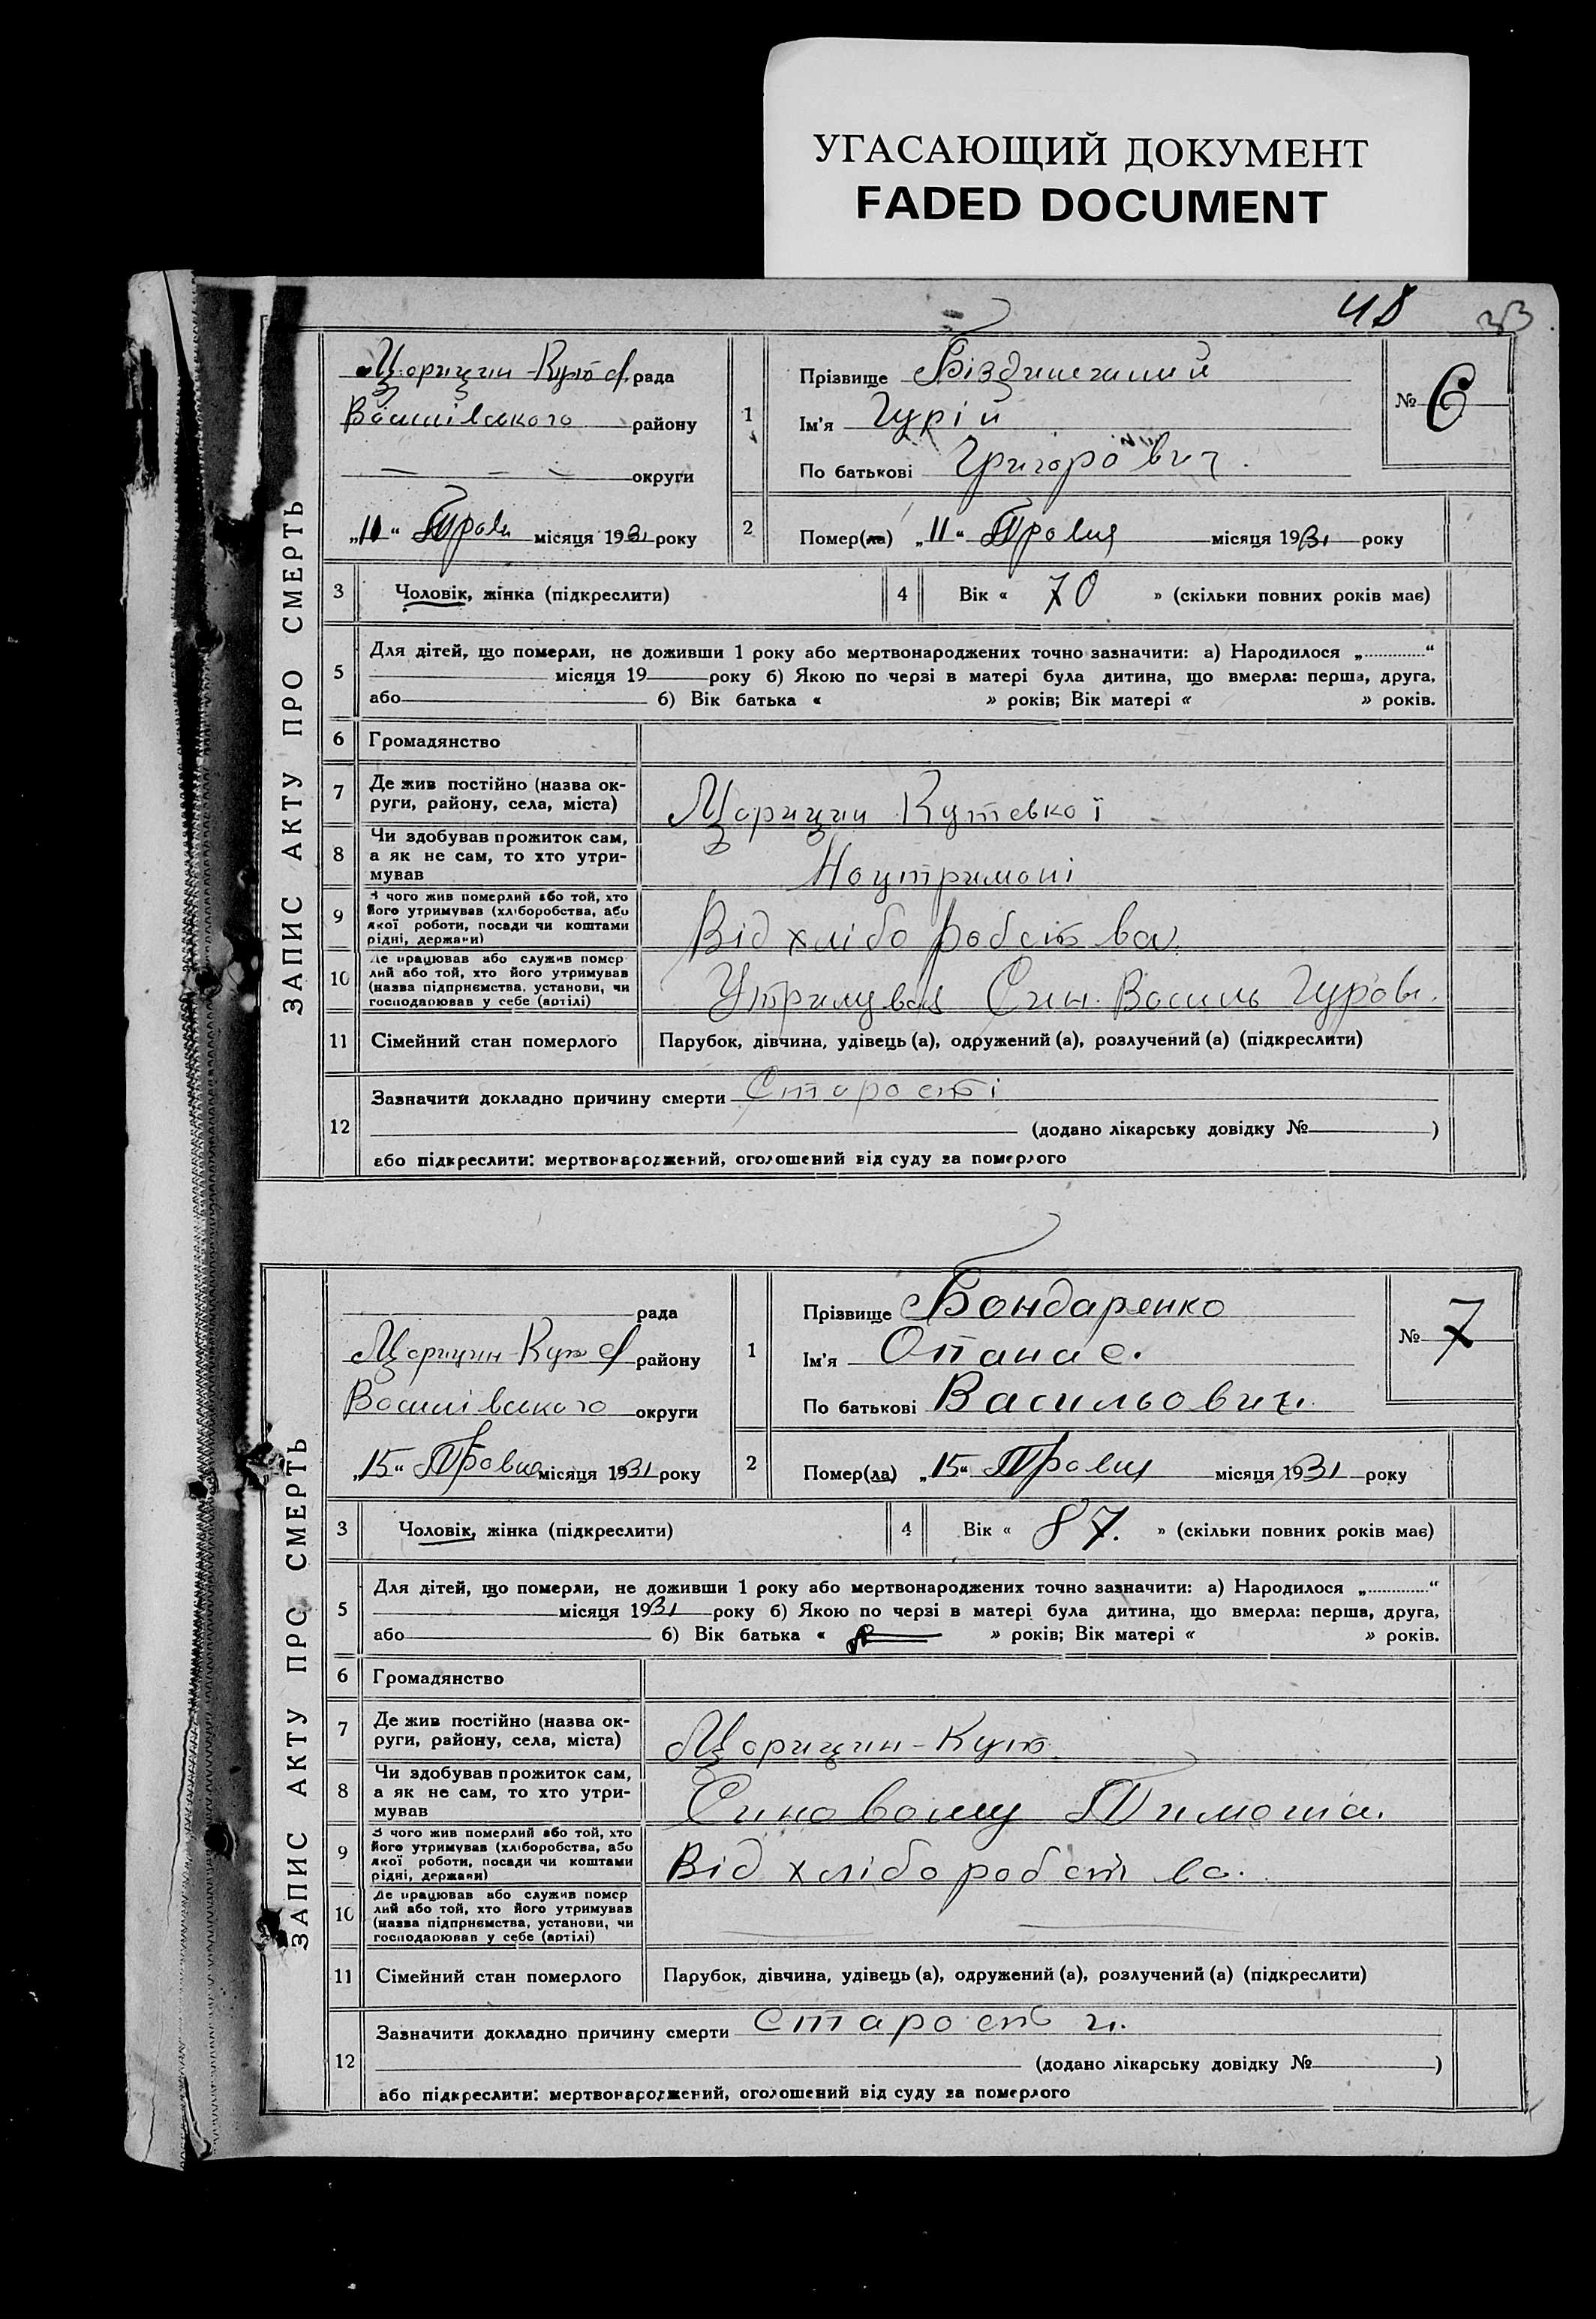 УГАСАЮЩИЙ ДОКУМЕНТ
FADED DOCUMENT
48 33
ЗАПИС АКТУ ПРО СМЕРТЬ
Царицин-Кут рада
Василівського району
округи
„11“ Трав місяця 1931 року
1
Прізвище
Ім'я Гурій
По батькові Григорович.
№ 6
2 Помер(ла) „11“ Травня місяця 1931 року
3 Чоловік, жінка (підкреслити)
4 Вік « 70 » (скільки повних років має)
5 Для дітей, що померли, не доживши 1 року або мертвонароджених точно зазначити: а) Народилося „............“
місяця 19 року б) Якою по черзі в матері була дитина, що вмерла: перша, друга,
або б) Вік батька « » років; Вік матері « » років.
6 Громадянство
7 Де жив постійно (назва ок-
руги, району, села, міста)
Царицин Кутській
8 Чи здобував прожиток сам,
а як не сам, то хто утри-
мував
Наутримані
9 З чого жив померлий або той, хто
його утримував (хліборобства, або
якої роботи, посади чи коштами
рідні, держави)
Від хліборобства
10 Де працював або служив помер
лий або той, хто його утримував
(назва підприємства, установи, чи
господарював у себе (артілі)
Утримував Син. Василь Гуров.
11 Сімейний стан померлого Парубок, дівчина, удівець (а), одружений (а), розлучений (а) (підкреслити)
12 Зазначити докладно причину смерти Старості
(додано лікарську довідку № )
або підкреслити: мертвонароджений, оголошений від суду за померлого
ЗАПИС АКТУ ПРО СМЕРТЬ
рада
Царицин-Кут району
Василівського округи
„15“ Травня місяця 1931 року
1
Прізвище Бондаренко
Ім'я Опанас.
По батькові Васильович.
№ 7
2 Помер(ла) „15“ Травня місяця 1931 року
3 Чоловік, жінка (підкреслити)
4 Вік « 87. » (скільки повних років має)
5 Для дітей, що померли, не доживши 1 року або мертвонароджених точно зазначити: а) Народилося „............“
місяця 1931 року б) Якою по черзі в матері була дитина, що вмерла: перша, друга,
або б) Вік батька « » років; Вік матері « » років.
6 Громадянство
7 Де жив постійно (назва ок-
руги, району, села, міста)
Царицин-Кут
8 Чи здобував прожиток сам,
а як не сам, то хто утри-
мував
9 З чого жив померлий або той, хто
його утримував (хліборобства, або
якої роботи, посади чи коштами
рідні, держави)
Від хліборобства.
10 Де працював або служив помер
лий або той, хто його утримував
(назва підприємства, установи, чи
господарював у себе (артілі)
11 Сімейний стан померлого Парубок, дівчина, удівець (а), одружений (а), розлучений (а) (підкреслити)
12 Зазначити докладно причину смерти Старости.
(додано лікарську довідку № )
або підкреслити: мертвонароджений, оголошений від суду за померлого